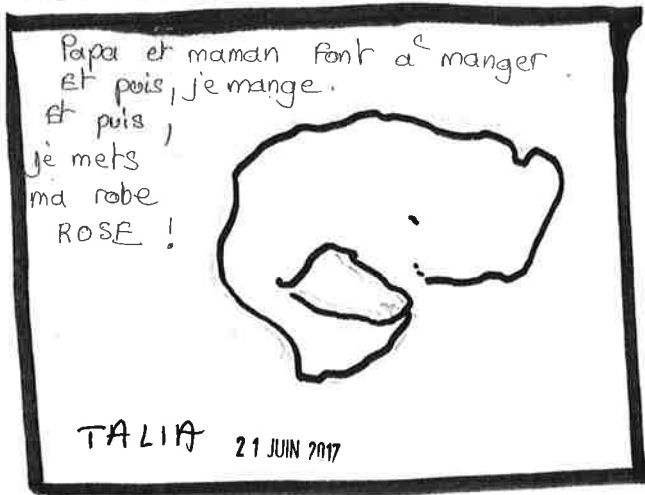 Papa et maman font à manger
Et puis, je mange.
Et puis,
je mets
ma robe
ROSE !
TALIA
21 JUIN 2017